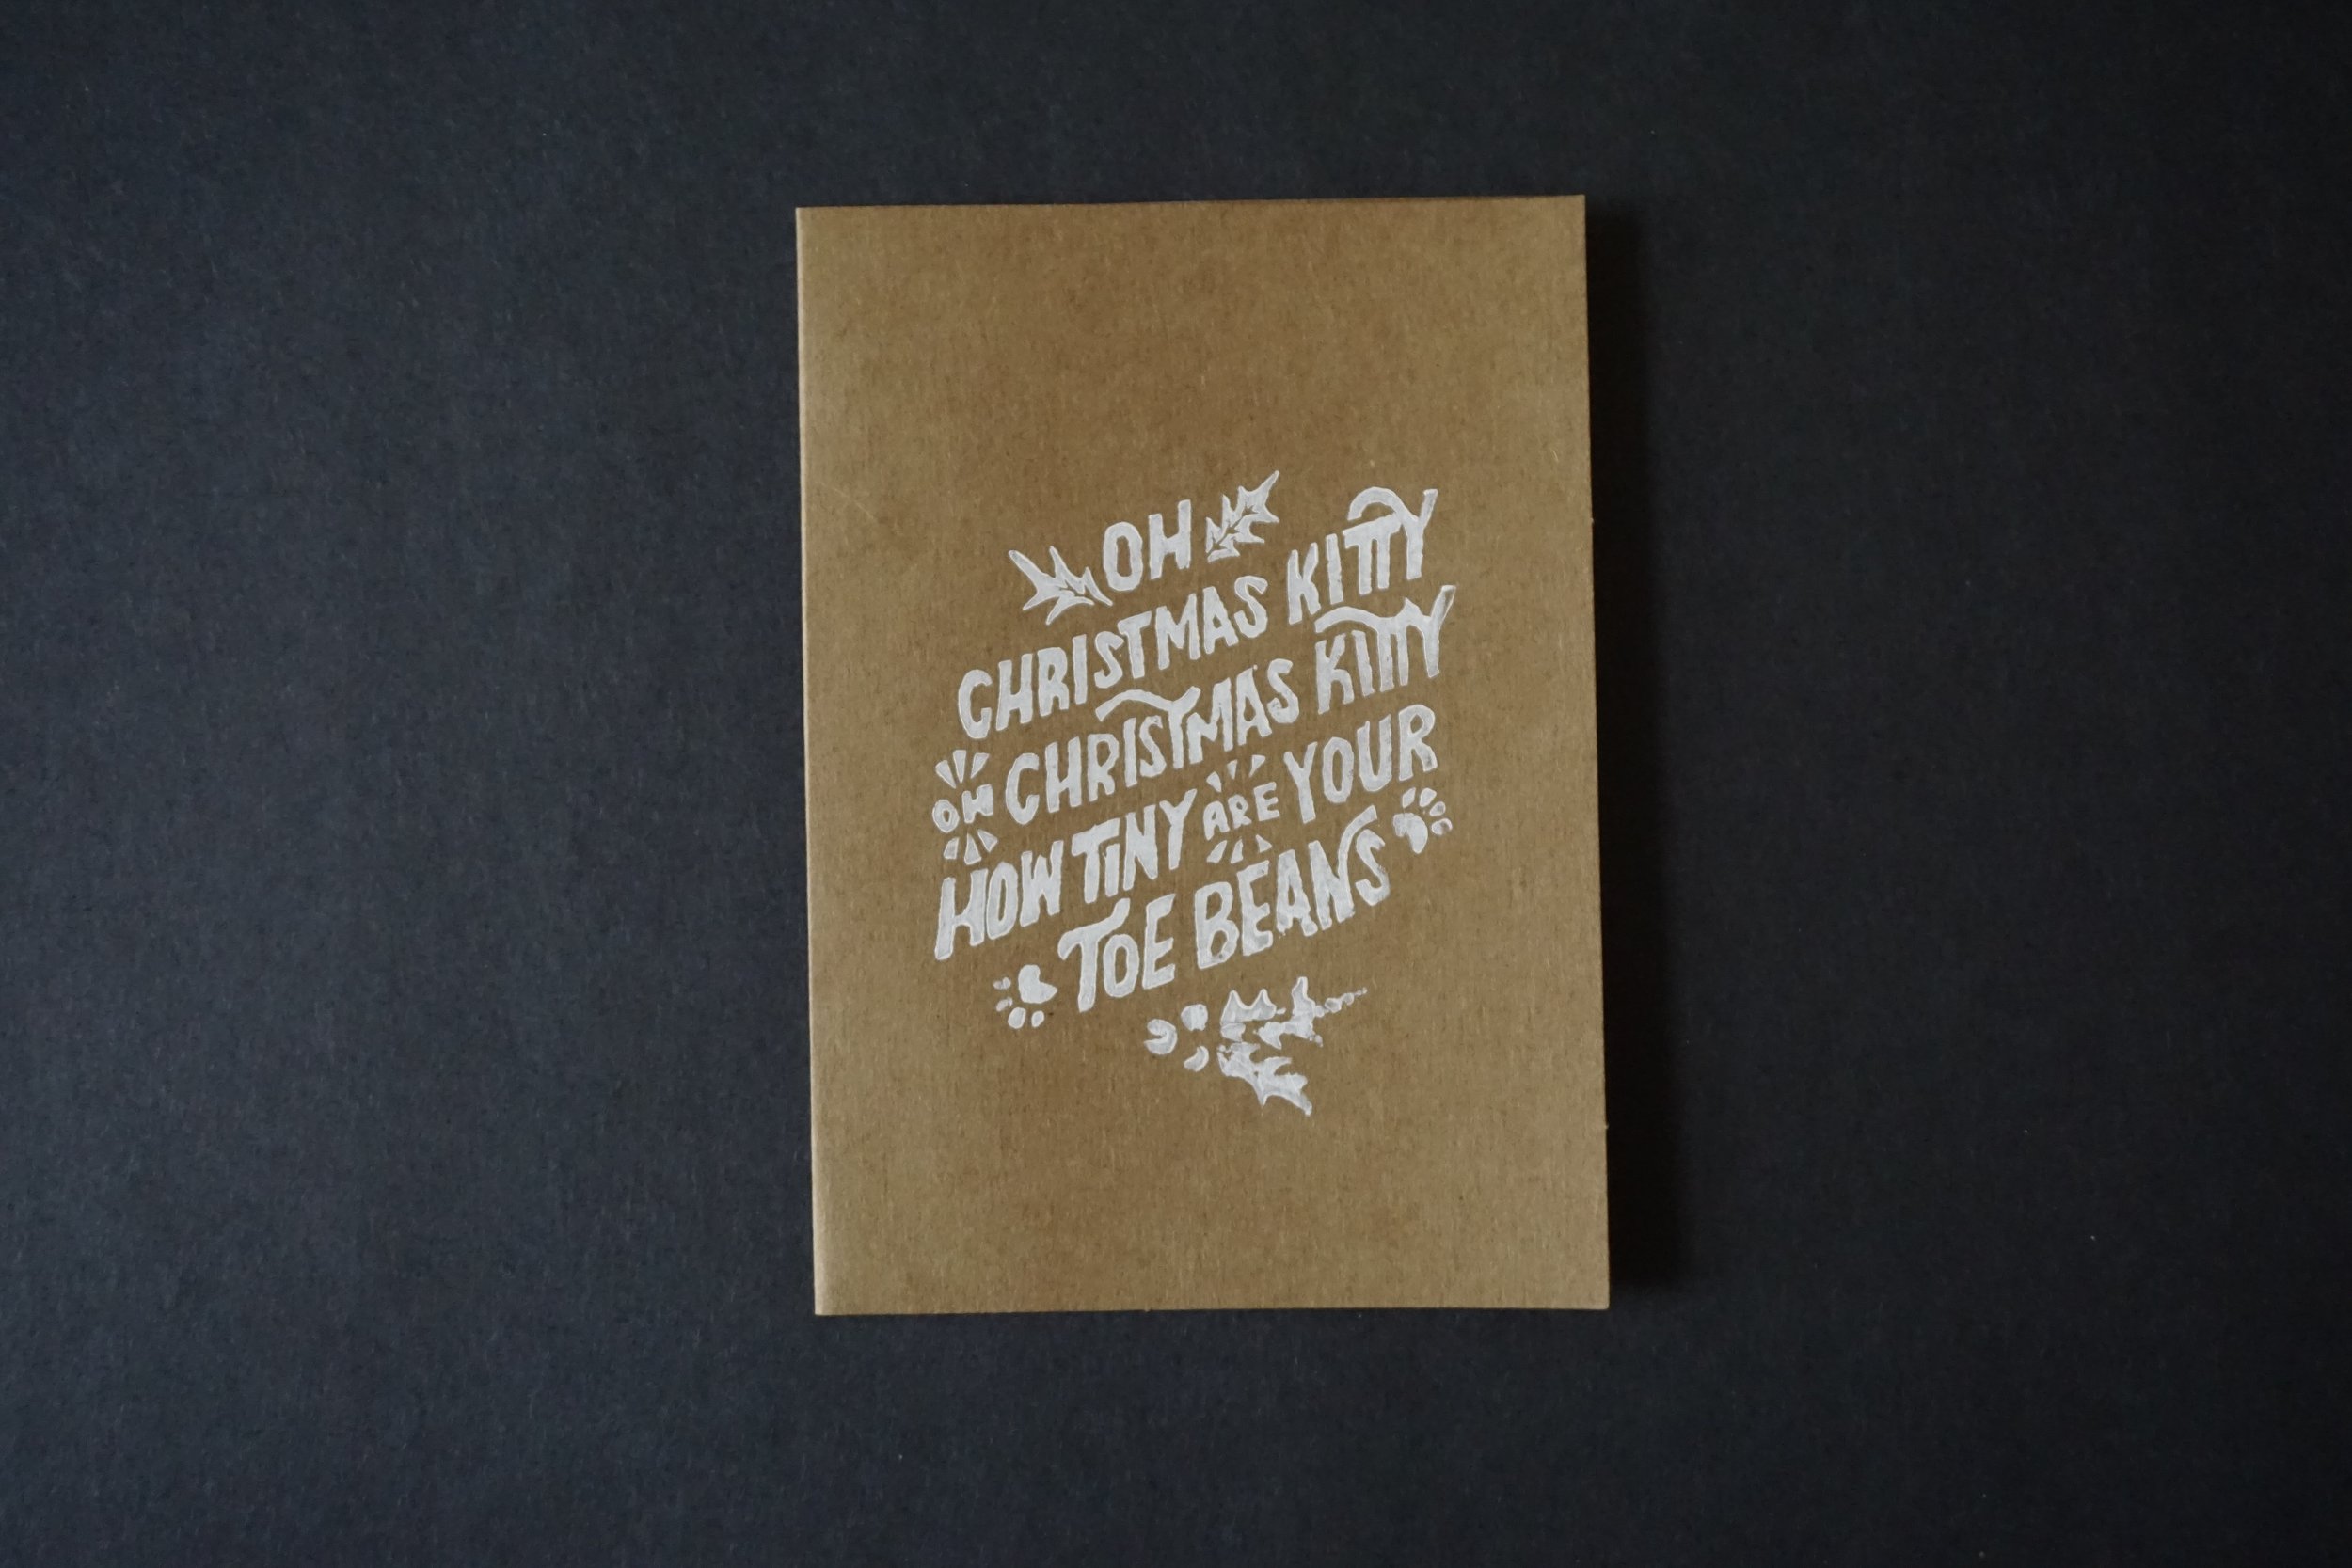 OH
CHRISTMAS KITTY
OH CHRISTMAS KITTY
HOW TINY ARE YOUR
TOE BEANS